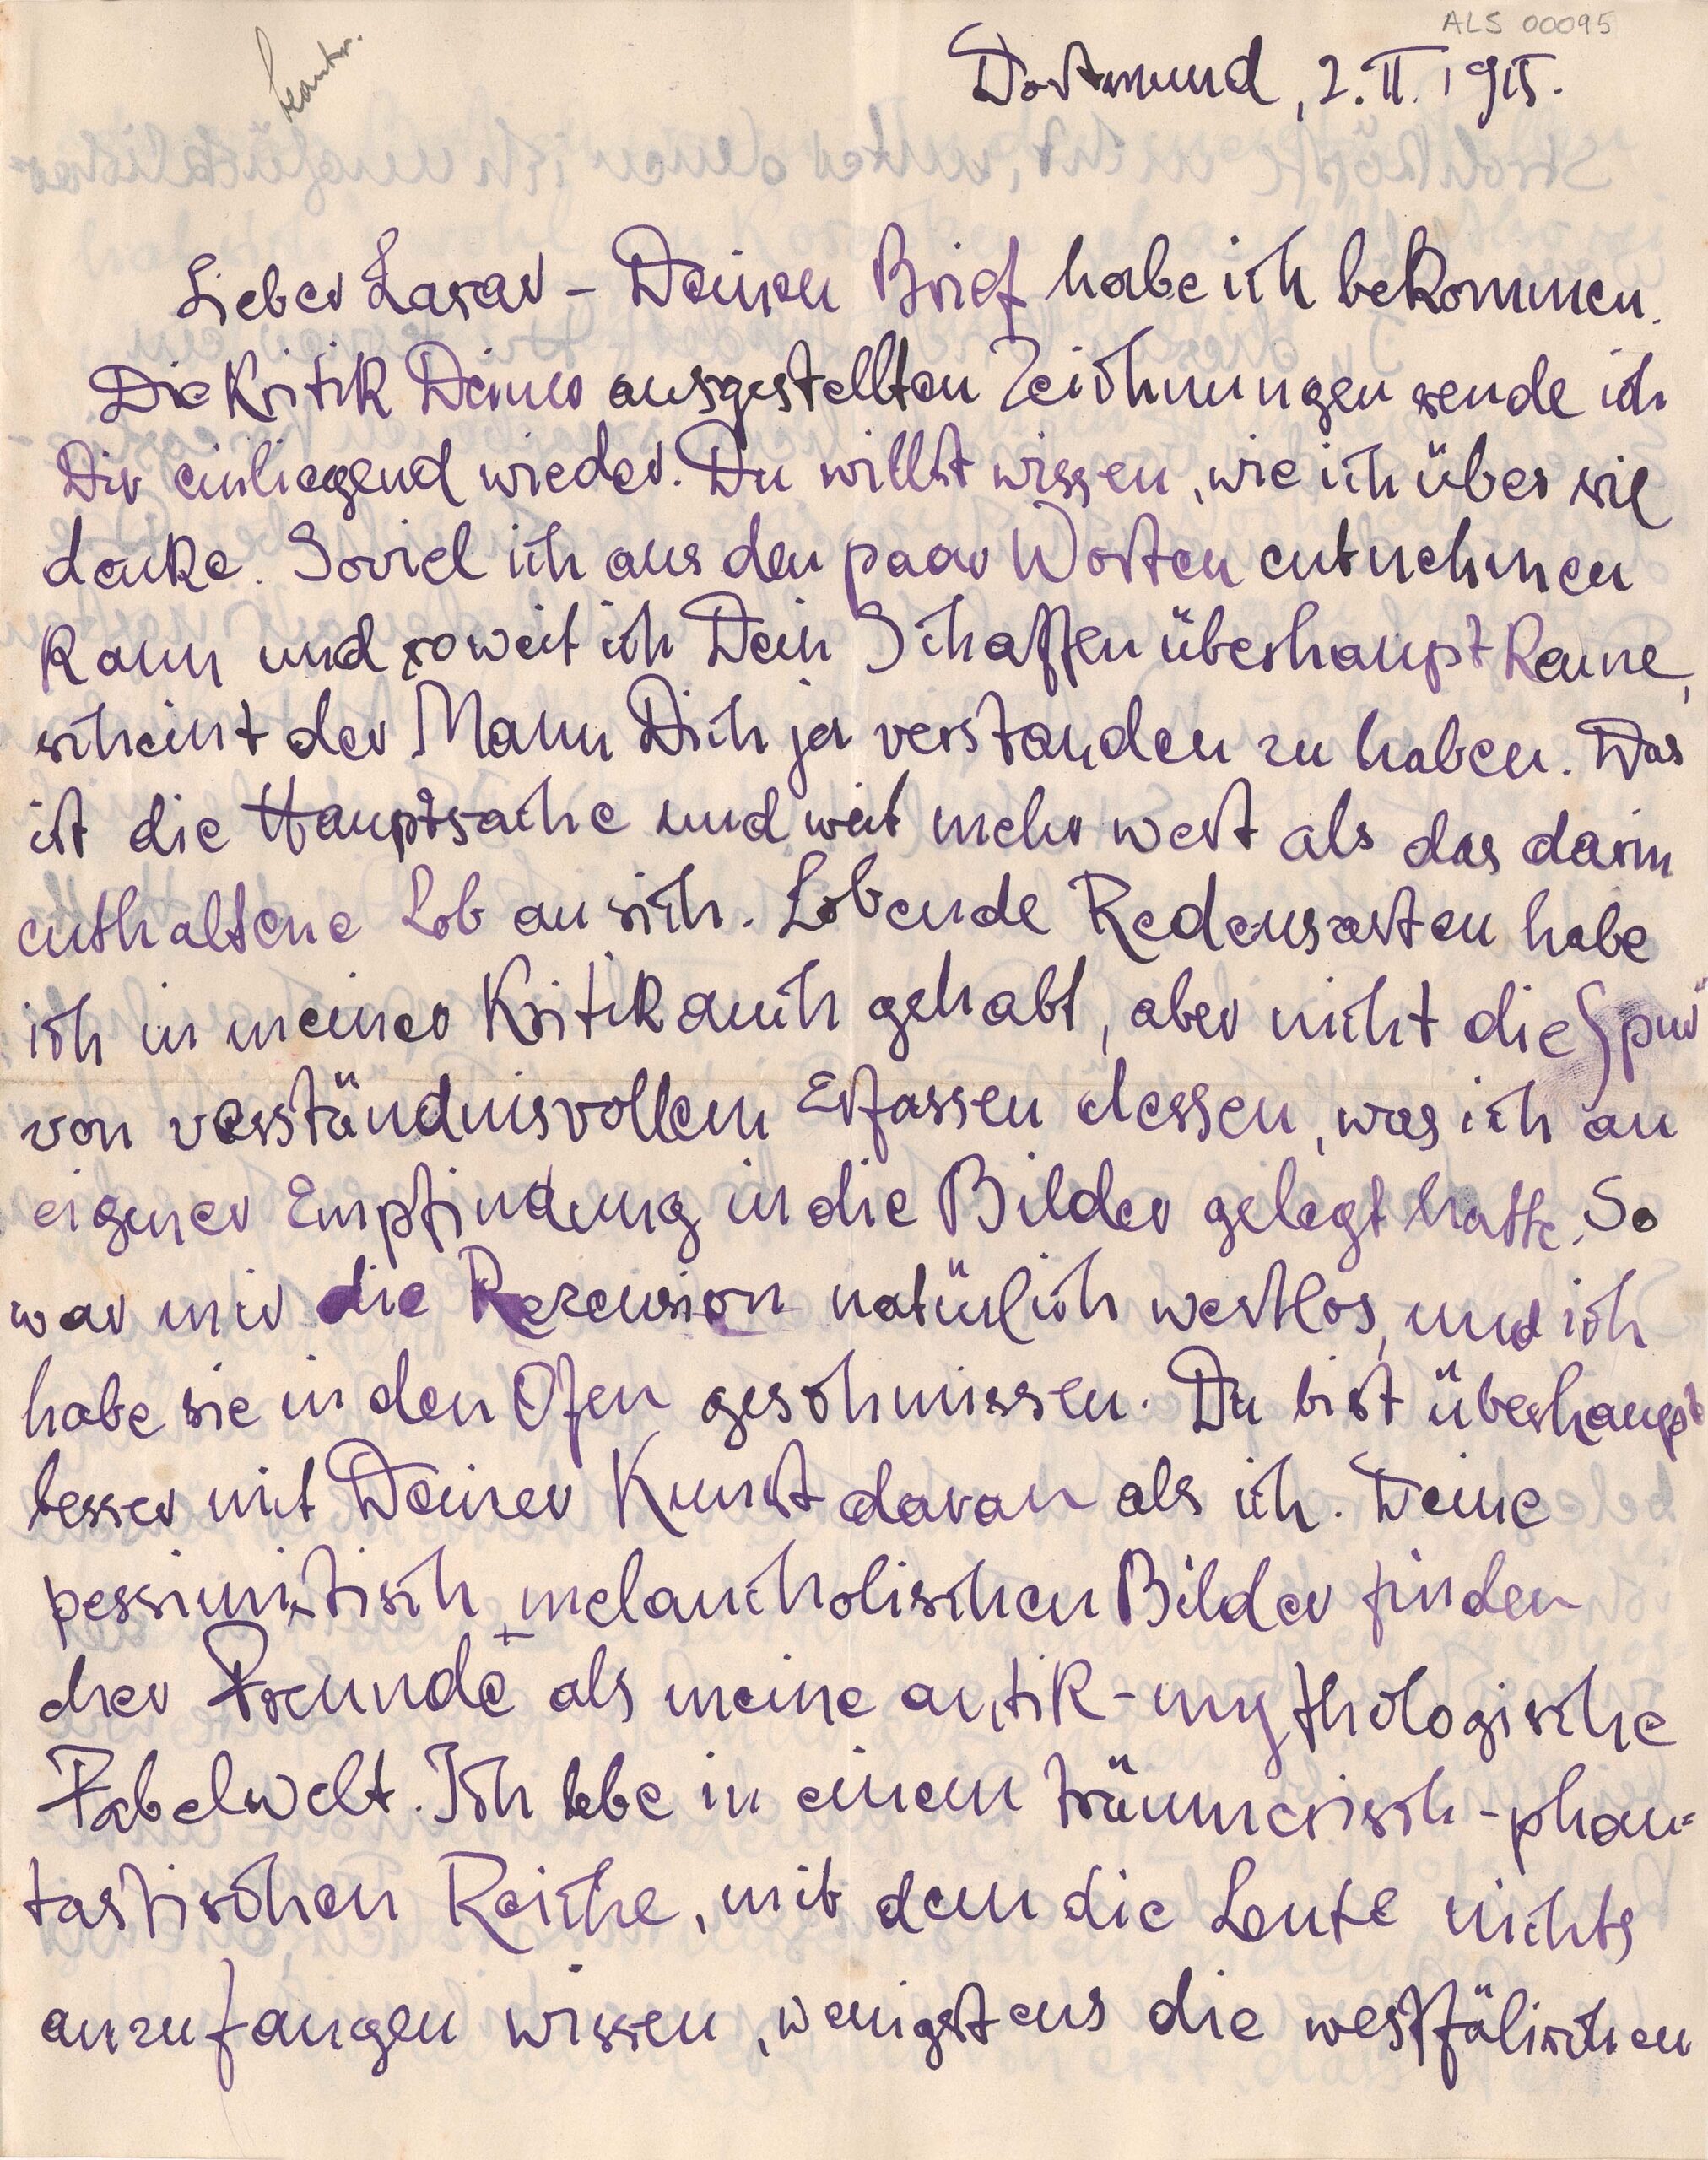 ALS 00095
beantw.
Dortmund, 2. II. 1915.
Lieber Lasar – Deinen Brief habe ich bekommen.
Die Kritik Deiner ausgestellten Zeichnungen sende ich
Dir einliegend wieder. Du willst wissen, wie ich über sie
denke. Soviel ich aus den paar Worten entnehmen
kann und soweit ich Dein Schaffen überhaupt kenne,
scheint der Mann Dich ja verstanden zu haben. Das
ist die Hauptsache und weit mehr wert als das darin
enthaltene Lob an sich. Lobende Redensarten habe
ich in meiner Kritik auch gehabt, aber nicht die Spur
von verständnisvollem Erfassen dessen, was ich an
eigener Empfindung in die Bilder gelegt hatte. So
war mir die Rezension natürlich wertlos, und ich
habe sie in den Ofen geschmissen. Du bist überhaupt
besser mit Deiner Kunst daran als ich. Deine
pessimistisch-melancholischen Bilder finden
eher Freunde als meine antik-mythologische
Fabelwelt. Ich lebe in einem träumerisch-phan=
tastischen Reiche, mit dem die Leute nichts
anzufangen wissen, wenigstens die westfälischen